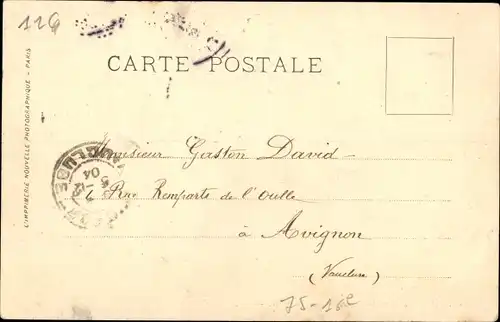 126
CARTE POSTALE
L'IMPRIMERIE NOUVELLE PHOTOGRAPHIQUE - PARIS
Monsieur Gaston David
Rue Remparts de l'Oulle
à Avignon
(Vaucluse)
04